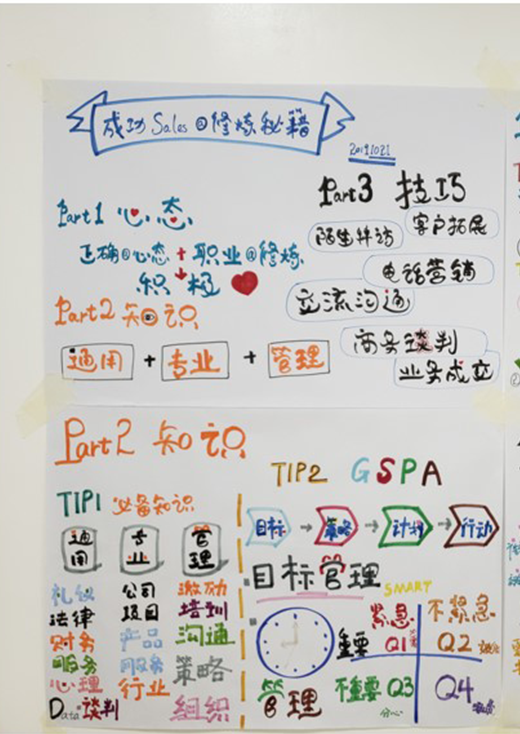 成功Sales@修炼秘籍
20191021
Part1 心态
正确@心态+职业@修炼
积极
Part2 知识
通用+专业+管理
Part3 技巧
陌生拜访
客户拓展
电话营销
交流沟通
商务谈判
业务成交
Part2 知识
TIP1 必备知识
通用 专业 管理
礼仪 公司 激励
法律 项目 培训
财务 产品 沟通
服务 策略
心理 行业
Data 谈判 组织
TIP2 GSPA
目标→策略→计划→行动
目标管理
SMART
紧急 不紧急
重要 Q1 Q2
管理 不重要 Q3 Q4